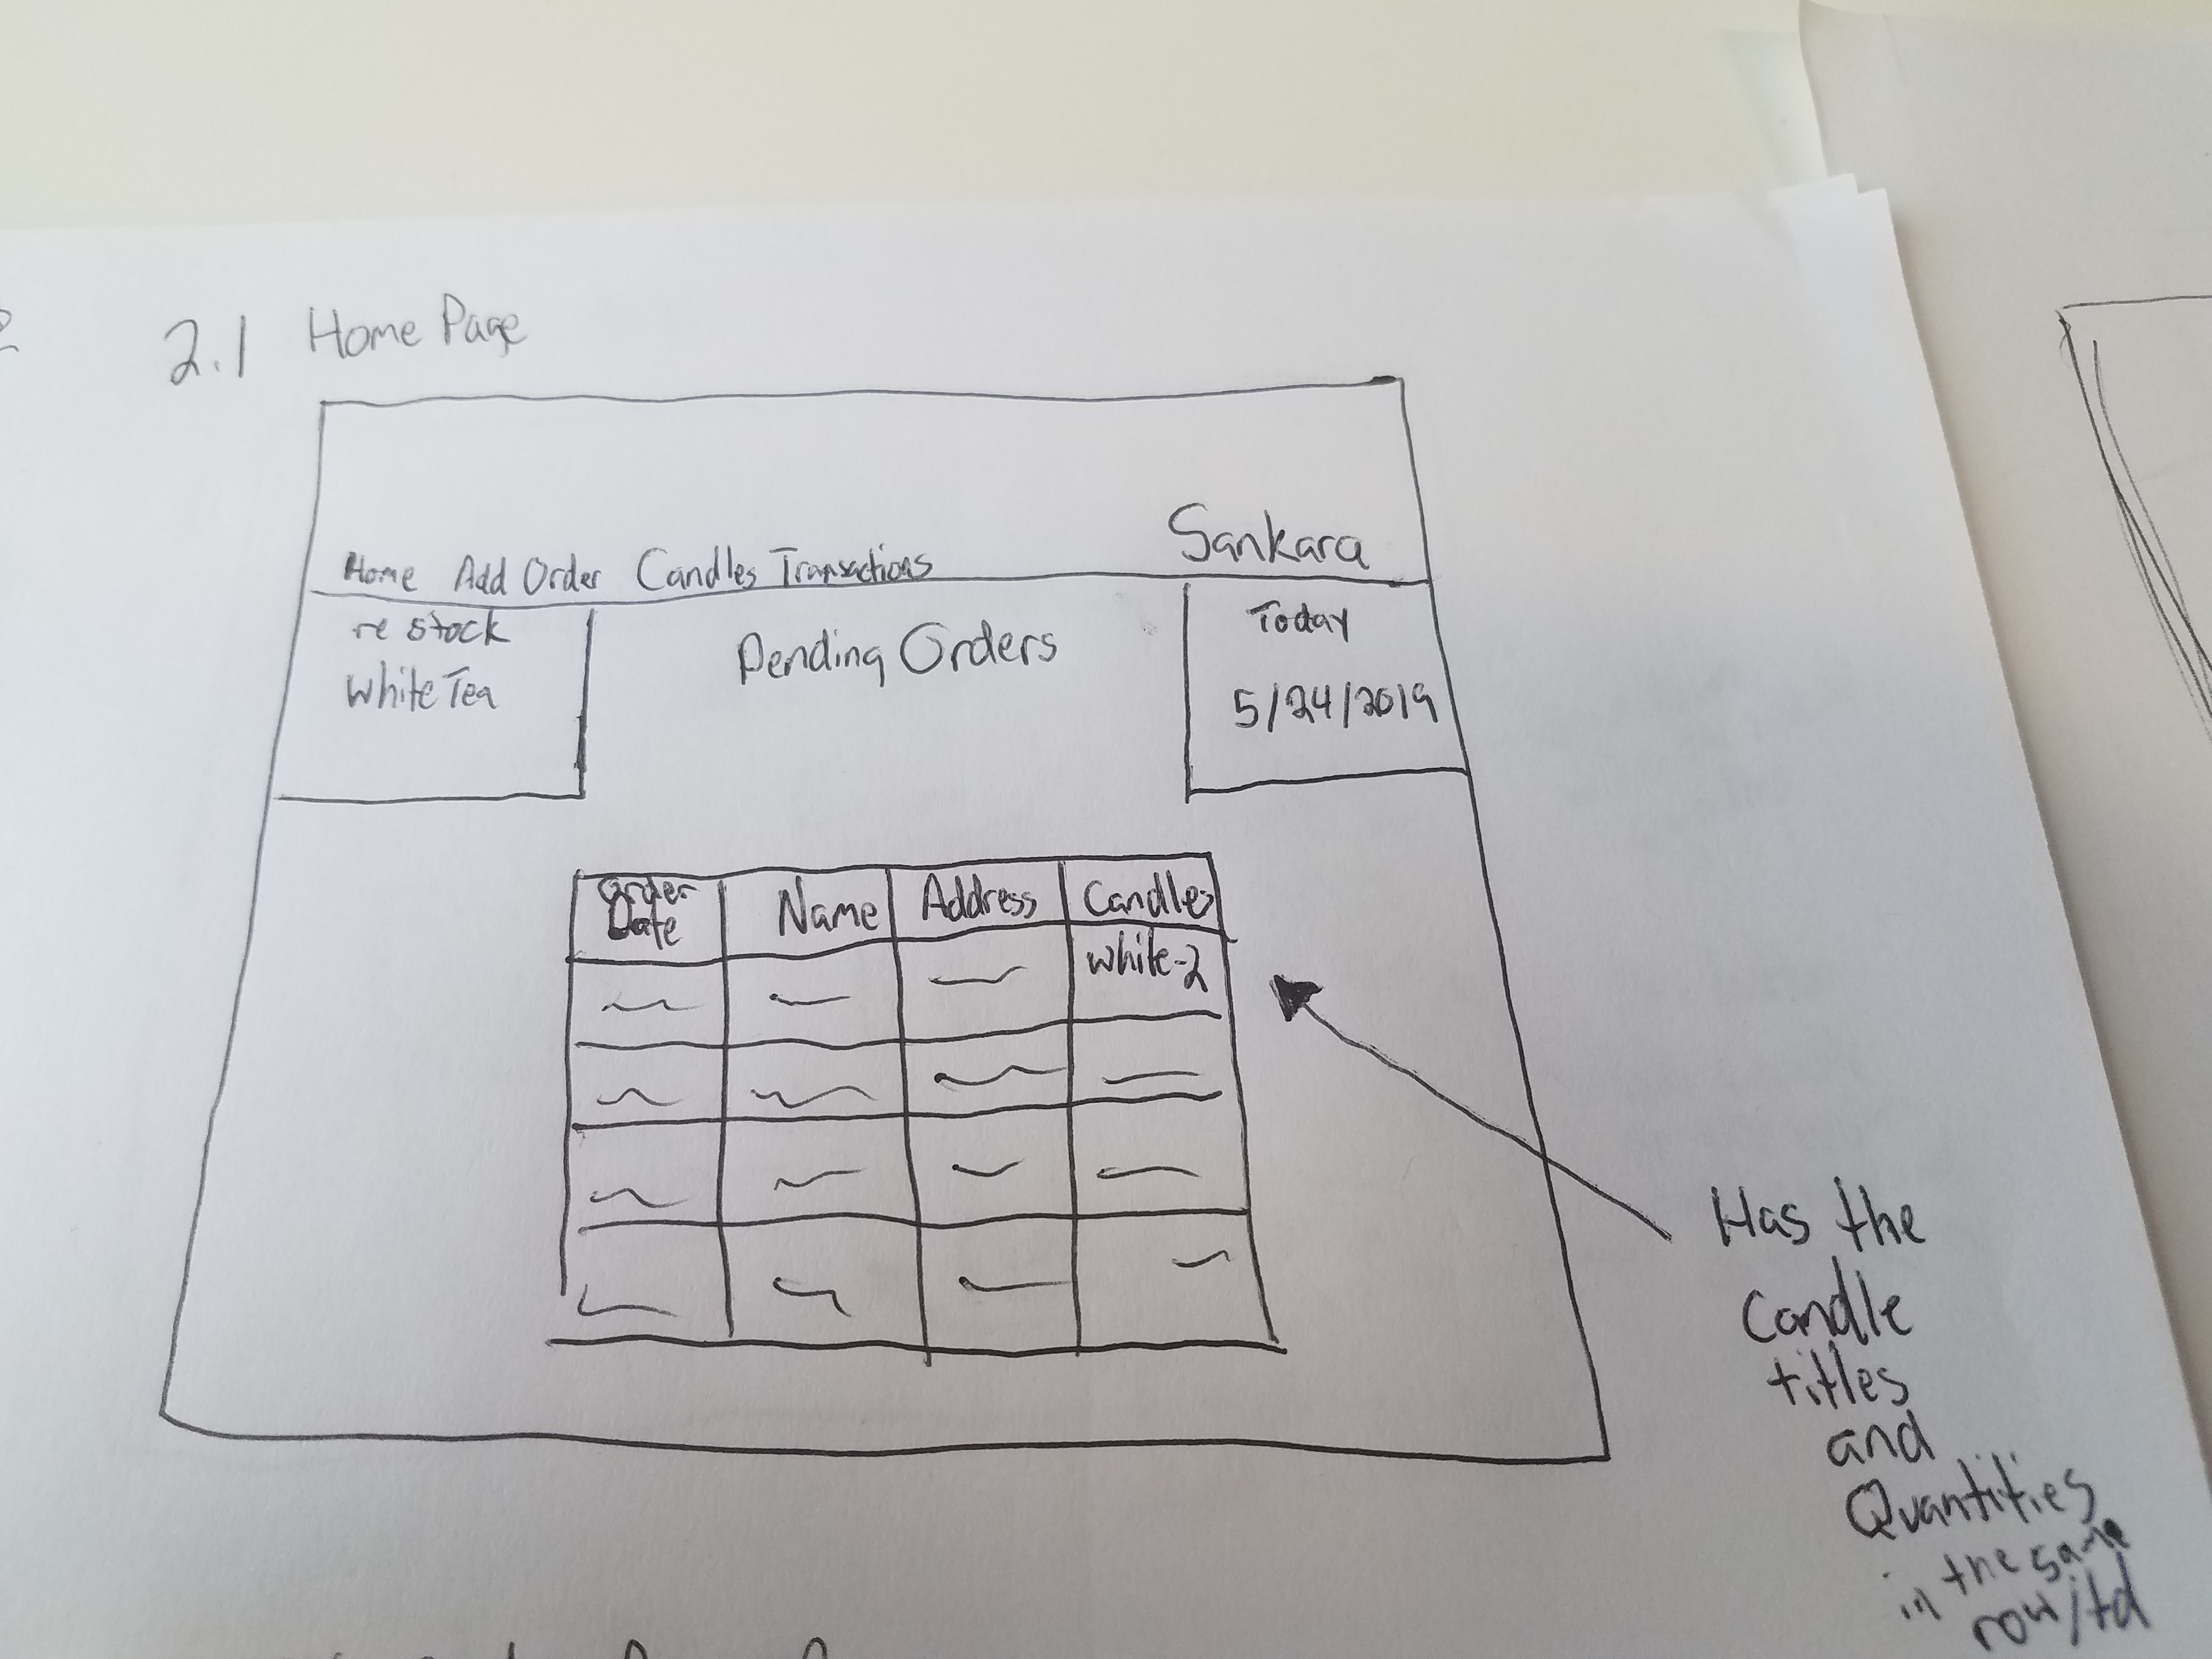 2.1 Home Page
Sankara
Home Add Order Candles Transactions
restock
White Tea
Pending Orders
Today
5/24/2019
Order Date Name Address Candles
White-2
Has the
Candle
titles
and
Quantities
in the same
row/td